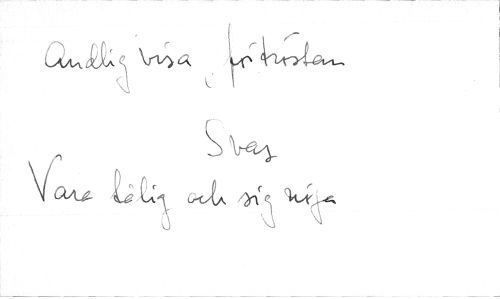 Andlig visa, förtröstan
Svar
Vara tålig och sig nöja